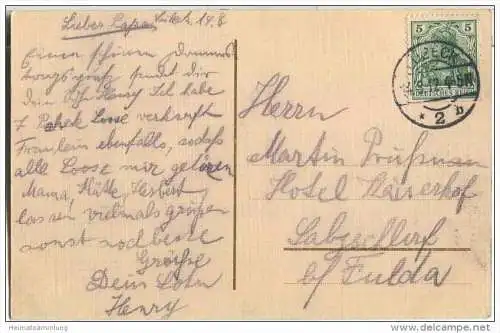 Lieber Papa Lübeck 19.8
Einen schönen Sonn
tagsgruß sendet dir
dein Sohn Henry Ich habe
7 Paket Loose verkauft
Fräulein ebenfalls, sodaß
alle Loose mir gehören
Mama, Hütte, Herbert
lassen vielmals grüßen
sonst noch beste
Grüße
Dein Sohn
Henry
5 5
DEUTSCHES REICH
LÜBECK
* 2 b
Herrn
Martin Prüßmann
Hotel Kaiserhof
Salzschlirf
b/ Fulda
Heimatsammlung
www.heimatsammlung.de